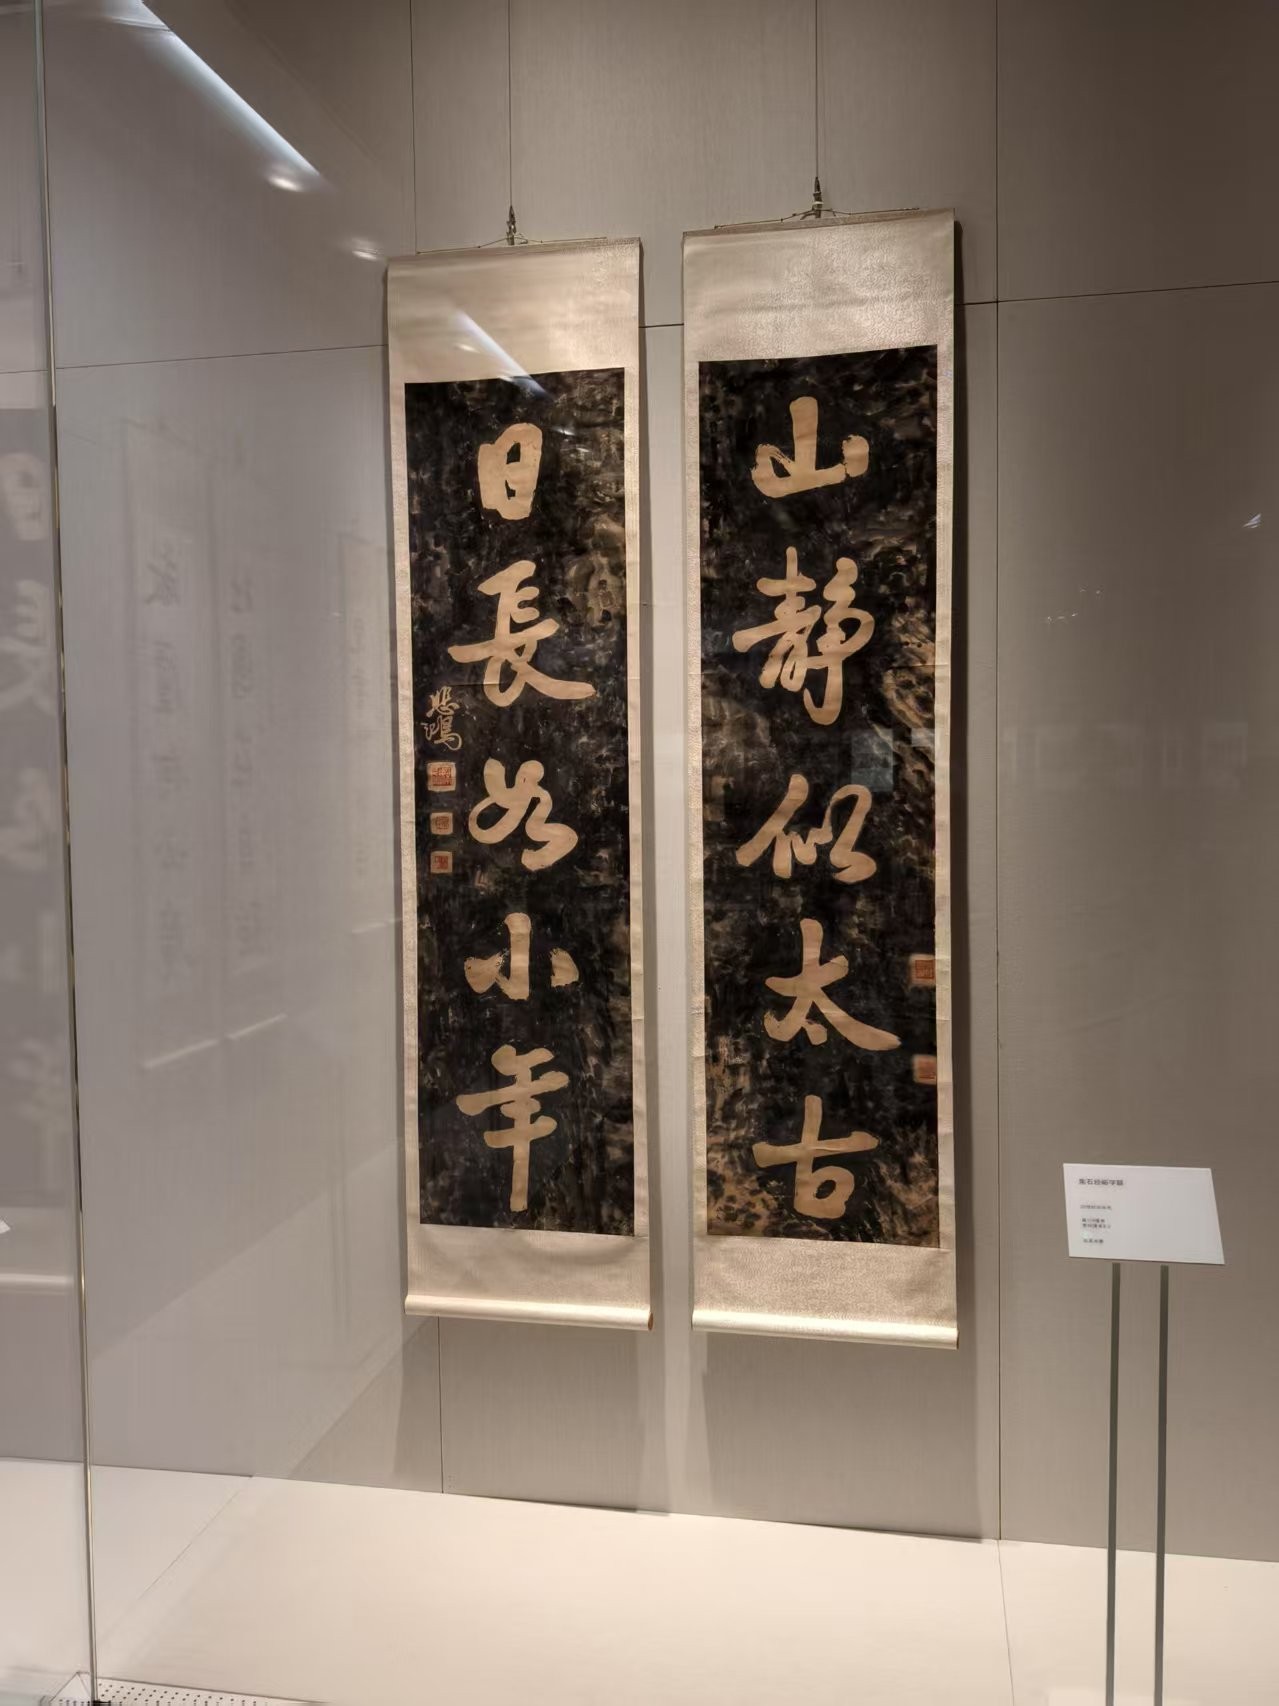 山靜似太古
日長如小年
悲鴻